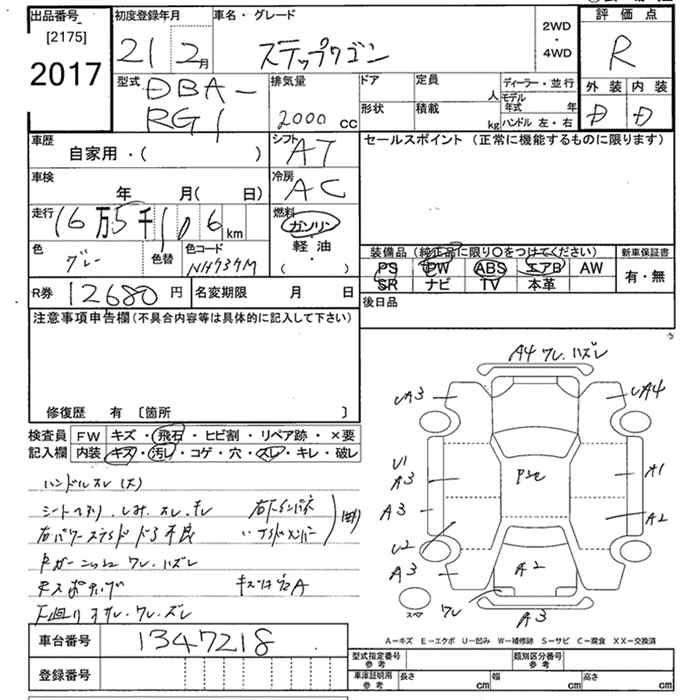 出品番号
[2175]
2017
初度登録年月
21 2月
車名・グレード
ステップワゴン
2WD
・
4WD
評価点
R
外装 内装
D D
型式
DBA-
RG1
排気量
2000 cc
ドア
定員 人
ディーラー・並行
モデル年式 年
形状
積載 kg
ハンドル 左・右
車歴
自家用・( )
シフト
AT
セールスポイント (正常に機能するものに限ります)
車検
年 月( 日)
冷房
AC
走行
16万5千106km
燃料
ガソリン・
軽油
( ・ )
色
グレー
色替
色コード
NH737M
装備品 (純正品に限り○をつけてください)
PS PW ABS エアB AW
SR ナビ TV 本革
新車保証書
有・無
R券 12680円
名変期限 月 日
後日品
注意事項申告欄(不具合内容等は具体的に記入して下さい)
修復歴 有 [箇所 ]
検査員
記入欄
FW キズ・飛石・ヒビ割・リペア跡・×要
内装 キズ・汚レ・コゲ・穴・スレ・キレ・破レ
ハンドルスレ(大)
A4 ワレ.ハズレ
UA3
UA4
U1
A3
A3
U2
A3
A1
A2
A2
ワレ
A3
スペア
A-キズ E-エクボ U-凹み W-補修跡 S-サビ C-腐食 XX-交換済
車台番号
1347218
登録番号
型式指定番号
参考
類別区分番号
参考
車庫証明用
参考
長さ cm
幅 cm
高さ cm